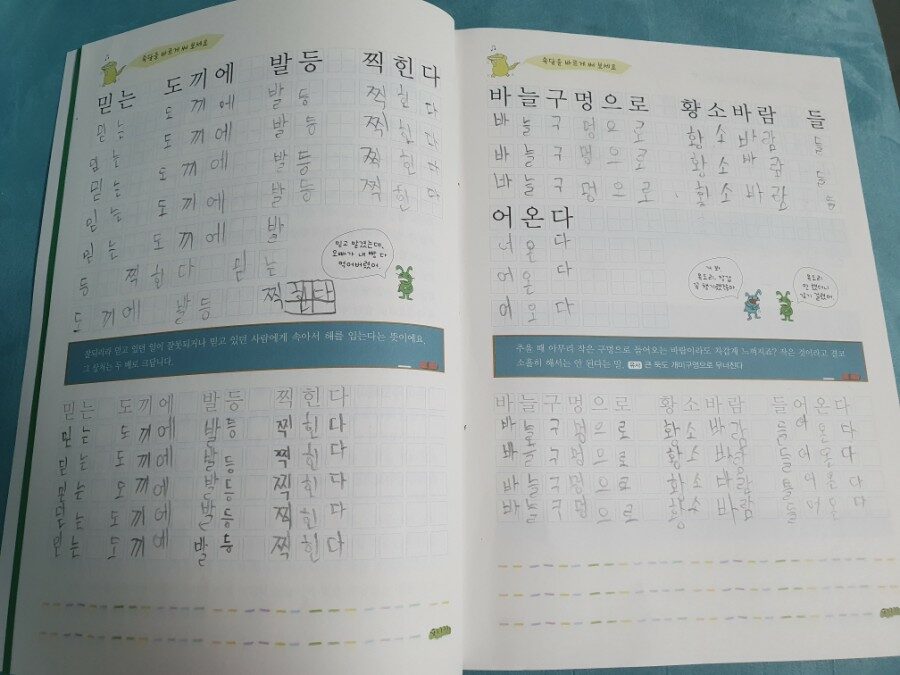 속담을 바르게 써 보세요
믿는 도끼에 발등 찍힌다
믿는 도끼에 발등 찍힌다
믿는 도끼에 발등 찍힌다
믿는 도끼에 발등 찍힌다
믿는 도끼에 발등 찍힌다
믿는 도끼에 발
등 찍힌다 믿는
도끼에 발등 찍힌다
믿고 맡겼는데,
오빠가 내 빵 다
먹어버렸어.
잘되리라 믿고 있던 일이 잘못되거나 믿고 있던 사람에게 속아서 해를 입는다는 뜻이에요.
그 상처는 두 배로 크답니다.
믿는 도끼에 발등 찍힌다
믿는 도끼에 발등 찍힌다
믿는 도끼에 발등 찍힌다
믿는 도끼에 발등 찍힌다
믿는 도끼에 발등 찍힌다
믿는 도끼에 발등 찍힌다
속담을 바르게 써 보세요
바늘구멍으로 황소바람 들
바늘구멍으로 황소바람 들
바늘구멍으로 황소바람 들
바늘구멍으로 황소바람 들
어온다
어온다
어온다
어오다
거 봐
목도리, 장갑
꼭 챙기랬잖아
목도리
안 했더니
감기 걸렸어.
추울 때 아무리 작은 구멍으로 들어오는 바람이라도 차갑게 느껴지죠? 작은 것이라고 결코
소홀히 해서는 안 된다는 말. 유사 큰 둑도 개미구멍으로 무너진다
바늘구멍으로 황소바람 들어온다
바늘구멍으로 황소바람 들어온다
바늘구멍으로 황소바람 들어온다
바늘구멍으로 황소바람 들어온다
바늘구멍으로 황소바람 들어온다